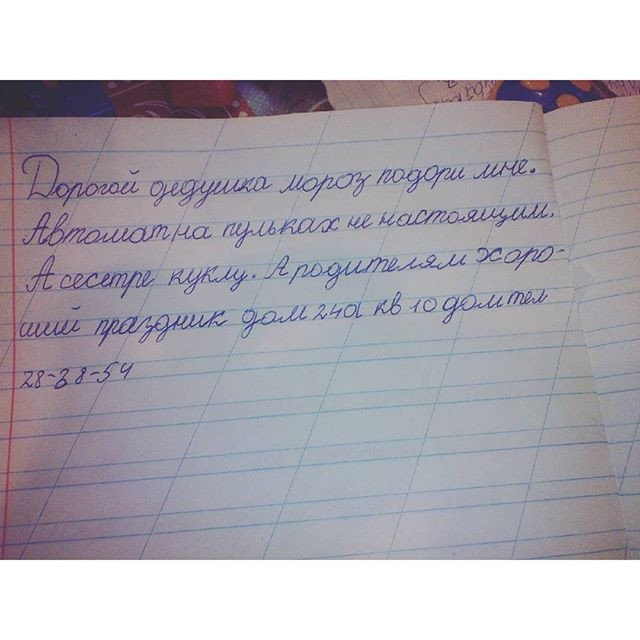 Дорогой дедушка мороз подори мне.
Автомат на пульках не настоящим.
А сесетре куклу. А родителям хоро-
ший праздник дом 24а кв 10 дом тел
28-38-54